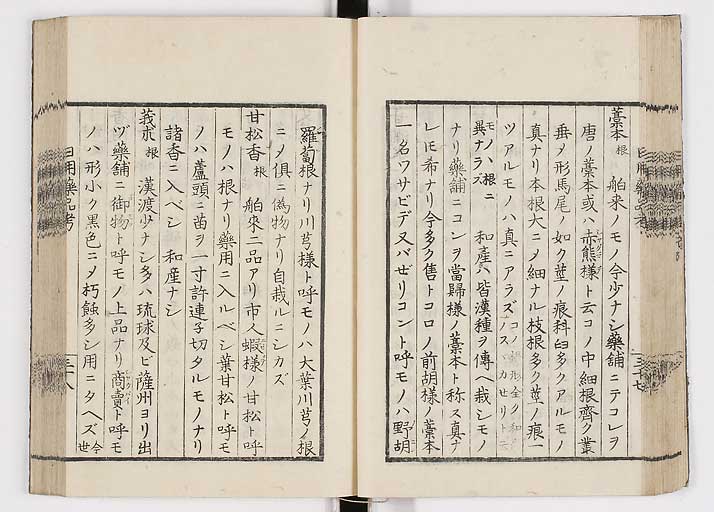 藁本 根 舶來ノモノ今少ナシ藥舗ニテコレヲ
唐ノ藁本或ハ赤熊様ト云コノ中細根齊ク叢
垂メ形馬尾ノ如ク莖ノ痕科臼多クアルモノ
真ナリ本根大ニメ細ナル枝根多ク莖ノ痕一
ツアルモノハ真ニアラズ
モノハ根ニ異ナラズ 和産ハ皆漢種ヲ傳ヘ栽シモノ
ナリ藥舗ニコレヲ當歸様ノ藁本ト称ス真ナ
レ𪜈希ナリ今多ク售トコロノ前胡様ノ藁本
一名ワサビデ又バゼリコント呼モノハ野胡
蘿蔔根ナリ川芎様ト呼モノハ大葉川芎ノ根
ニメ俱ニ偽物ナリ自栽ルニシカズ
甘松香 根 舶來二品アリ市人蝦様ノ甘松ト呼
モノハ根ナリ藥用ニ入ルベシ葉甘松ト呼モ
ノハ蘆頭ニ苗ヲ一寸許連子切タルモノナリ
諸香ニ入ベシ 和産ナシ
莪朮 根 漢渡少ナシ多ハ琉球及ビ薩州ヨリ出
ヅ藥舗ニ御物ト呼モノ上品ナリ商賣ト呼モ
ノハ形小ク黒色ニメ朽蝕多シ用ニタヘズ 今世
日用藥品考
三十七
三十八